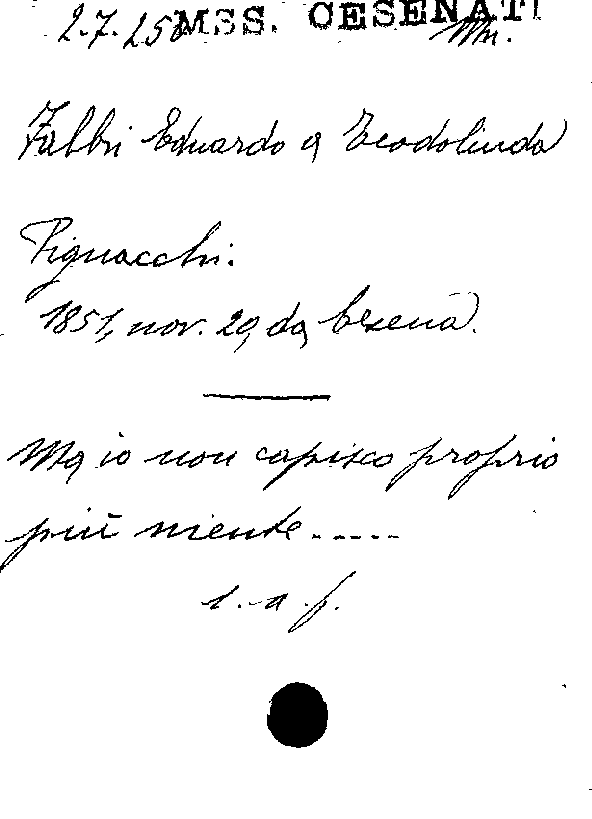 2.7.250 MSS. CESENATI Mn.
Fabbri Eduardo a Teodolinda
Pignacchi.
1851, nov. 29, da Cesena.
Ma io non capisco proprio
più niente.....
l. a. f.